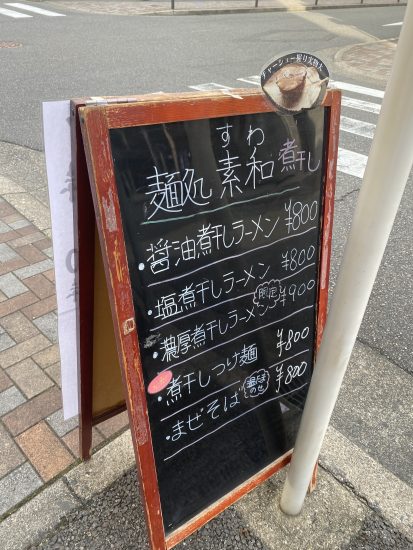 チャーシュー炙り実物大
すわ
麺処 素和 煮干し
・醤油煮干しラーメン ¥800
・塩煮干しラーメン ¥800
・濃厚煮干しラーメン 限定 ¥900
・煮干しつけ麺 ¥800
・まぜそば ¥800